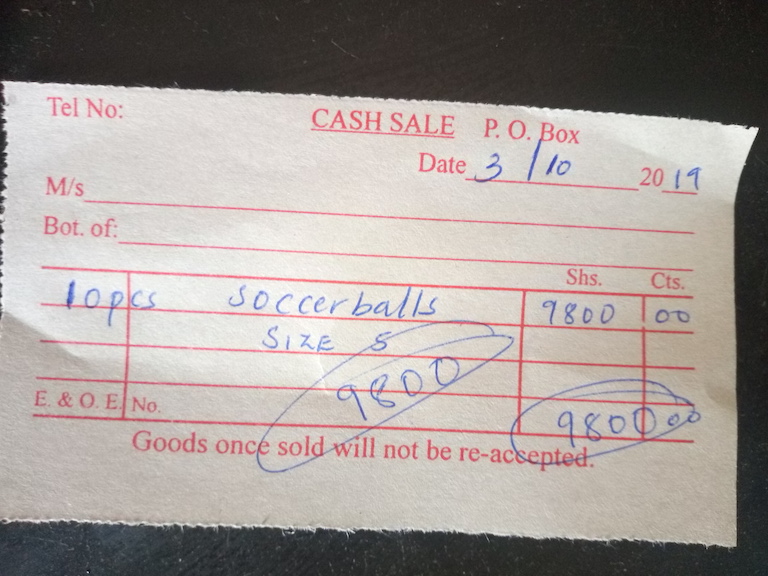 Tel No:
CASH SALE P. O. Box
Date 3/10 2019
M/s
Bot. of:
Shs. Cts.
10pcs soccerballs 9800 00
SIZE 5
9800
E. & O. E. No. 9800 00
Goods once sold will not be re-accepted.